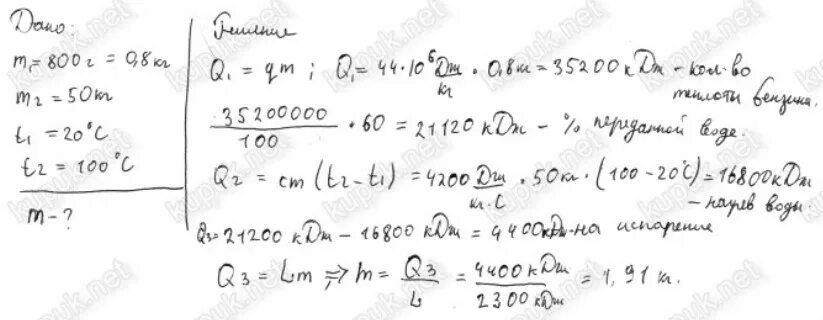 Дано:
m₁=800г = 0,8кг
m₂=50кг
t₁ = 20°C
t₂ = 100°C
m-?
Решение
Q₁ = qm ; Q₁= 44·10⁶ Дж/кг · 0,8кг = 35200кДж - кол-во
теплоты бензина.
35200000/100 · 60 = 21120 кДж - % переданной воде.
Q₂ = cm (t₂-t₁) = 4200 Дж/кг·С · 50кг · (100-20°C) = 16800кДж
- нагрев воды.
Q₃=21200 кДж - 16800 кДж = 4400кДж-на испарение
Q₃ = Lm ⇒ m = Q₃/L = 4400 кДж/2300 кДж = 1,91 кг.
kupuk.net